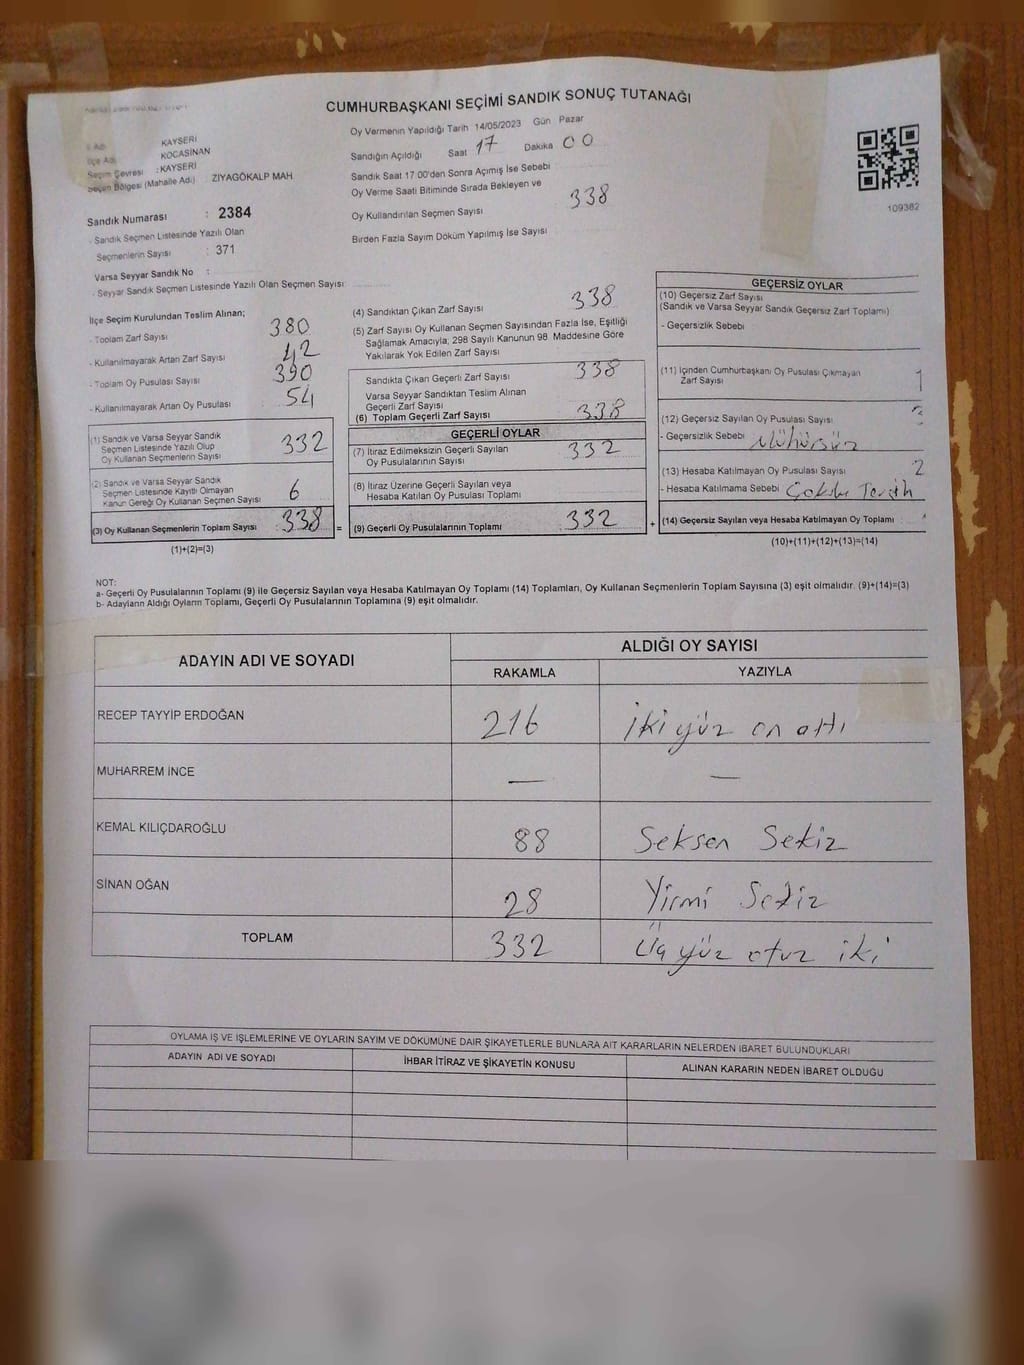 CUMHURBAŞKANI SEÇİMİ SANDIK SONUÇ TUTANAĞI
İl Adı KAYSERİ
İlçe Adı KOCASİNAN
Seçim Çevresi : KAYSERİ
Seçim Bölgesi (Mahalle Adı) ZIYAGÖKALP MAH
Sandık Numarası : 2384
- Sandık Seçmen Listesinde Yazılı Olan
Seçmenlerin Sayısı : 371
Varsa Seyyar Sandık No :
- Seyyar Sandık Seçmen Listesinde Yazılı Olan Seçmen Sayısı:
Oy Vermenin Yapıldığı Tarih 14/05/2023 Gün Pazar
Sandığın Açıldığı Saat 17 Dakika 00
Sandık Saat 17:00'den Sonra Açımış İse Sebebi
Oy Verme Saati Bitiminde Sırada Bekleyen ve
Oy Kullandırılan Seçmen Sayısı 338
Birden Fazla Sayım Döküm Yapılmış İse Sayısı
109362
İlçe Seçim Kurulundan Teslim Alınan;
- Toplam Zarf Sayısı 380
- Kullanılmayarak Artan Zarf Sayısı 42
- Toplam Oy Pusulası Sayısı 390
- Kullanılmayarak Artan Oy Pusulası 54
(1) Sandık ve Varsa Seyyar Sandık
Seçmen Listesinde Yazılı Olup
Oy Kullanan Seçmenlerin Sayısı 332
(2) Sandık ve Varsa Seyyar Sandık
Seçmen Listesinde Kayıtlı Olmayan
Kanun Gereği Oy Kullanan Seçmen Sayısı 6
(3) Oy Kullanan Seçmenlerin Toplam Sayısı : 338 =
(1)+(2)=(3)
(4) Sandıktan Çıkan Zarf Sayısı 338
(5) Zarf Sayısı Oy Kullanan Seçmen Sayısından Fazla İse, Eşitliği
Sağlamak Amacıyla; 298 Sayılı Kanunun 98. Maddesine Göre
Yakılarak Yok Edilen Zarf Sayısı
Sandıkta Çıkan Geçerli Zarf Sayısı 338
Varsa Seyyar Sandıktan Teslim Alınan
Geçerli Zarf Sayısı
(6) Toplam Geçerli Zarf Sayısı 338
GEÇERLİ OYLAR
(7) İtiraz Edilmeksizin Geçerli Sayılan
Oy Pusulalarının Sayısı 332
(8) İtiraz Üzerine Geçerli Sayılan veya
Hesaba Katılan Oy Pusulası Toplamı
(9) Geçerli Oy Pusulalarının Toplamı 332 +
GEÇERSİZ OYLAR
(10) Geçersiz Zarf Sayısı
(Sandık ve Varsa Seyyar Sandık Geçersiz Zarf Toplamı)
- Geçersizlik Sebebi
(11) İçinden Cumhurbaşkanı Oy Pusulası Çıkmayan
Zarf Sayısı 1
(12) Geçersiz Sayılan Oy Pusulası Sayısı
- Geçersizlik Sebebi Mühürsüz
(13) Hesaba Katılmayan Oy Pusulası Sayısı 2
- Hesaba Katılmama Sebebi Çoklu Tercih
(14) Geçersiz Sayılan veya Hesaba Katılmayan Oy Toplamı
(10)+(11)+(12)+(13)=(14)
NOT:
a- Geçerli Oy Pusulalarının Toplamı (9) ile Geçersiz Sayılan veya Hesaba Katılmayan Oy Toplamı (14) Toplamları, Oy Kullanan Seçmenlerin Toplam Sayısına (3) eşit olmalıdır. (9)+(14)=(3)
b- Adayların Aldığı Oyların Toplamı, Geçerli Oy Pusulalarının Toplamına (9) eşit olmalıdır.
ADAYIN ADI VE SOYADI
ALDIĞI OY SAYISI
RAKAMLA YAZIYLA
RECEP TAYYİP ERDOĞAN 216 İki yüz on altı
MUHARREM İNCE — —
KEMAL KILIÇDAROĞLU 88 Seksen Sekiz
SİNAN OĞAN 28 Yirmi Sekiz
TOPLAM 332 Üç yüz otuz iki
OYLAMA İŞ VE İŞLEMLERİNE VE OYLARIN SAYIM VE DÖKÜMÜNE DAİR ŞİKAYETLERLE BUNLARA AİT KARARLARIN NELERDEN İBARET BULUNDUKLARI
ADAYIN ADI VE SOYADI İHBAR İTİRAZ VE ŞİKAYETİN KONUSU ALINAN KARARIN NEDEN İBARET OLDUĞU